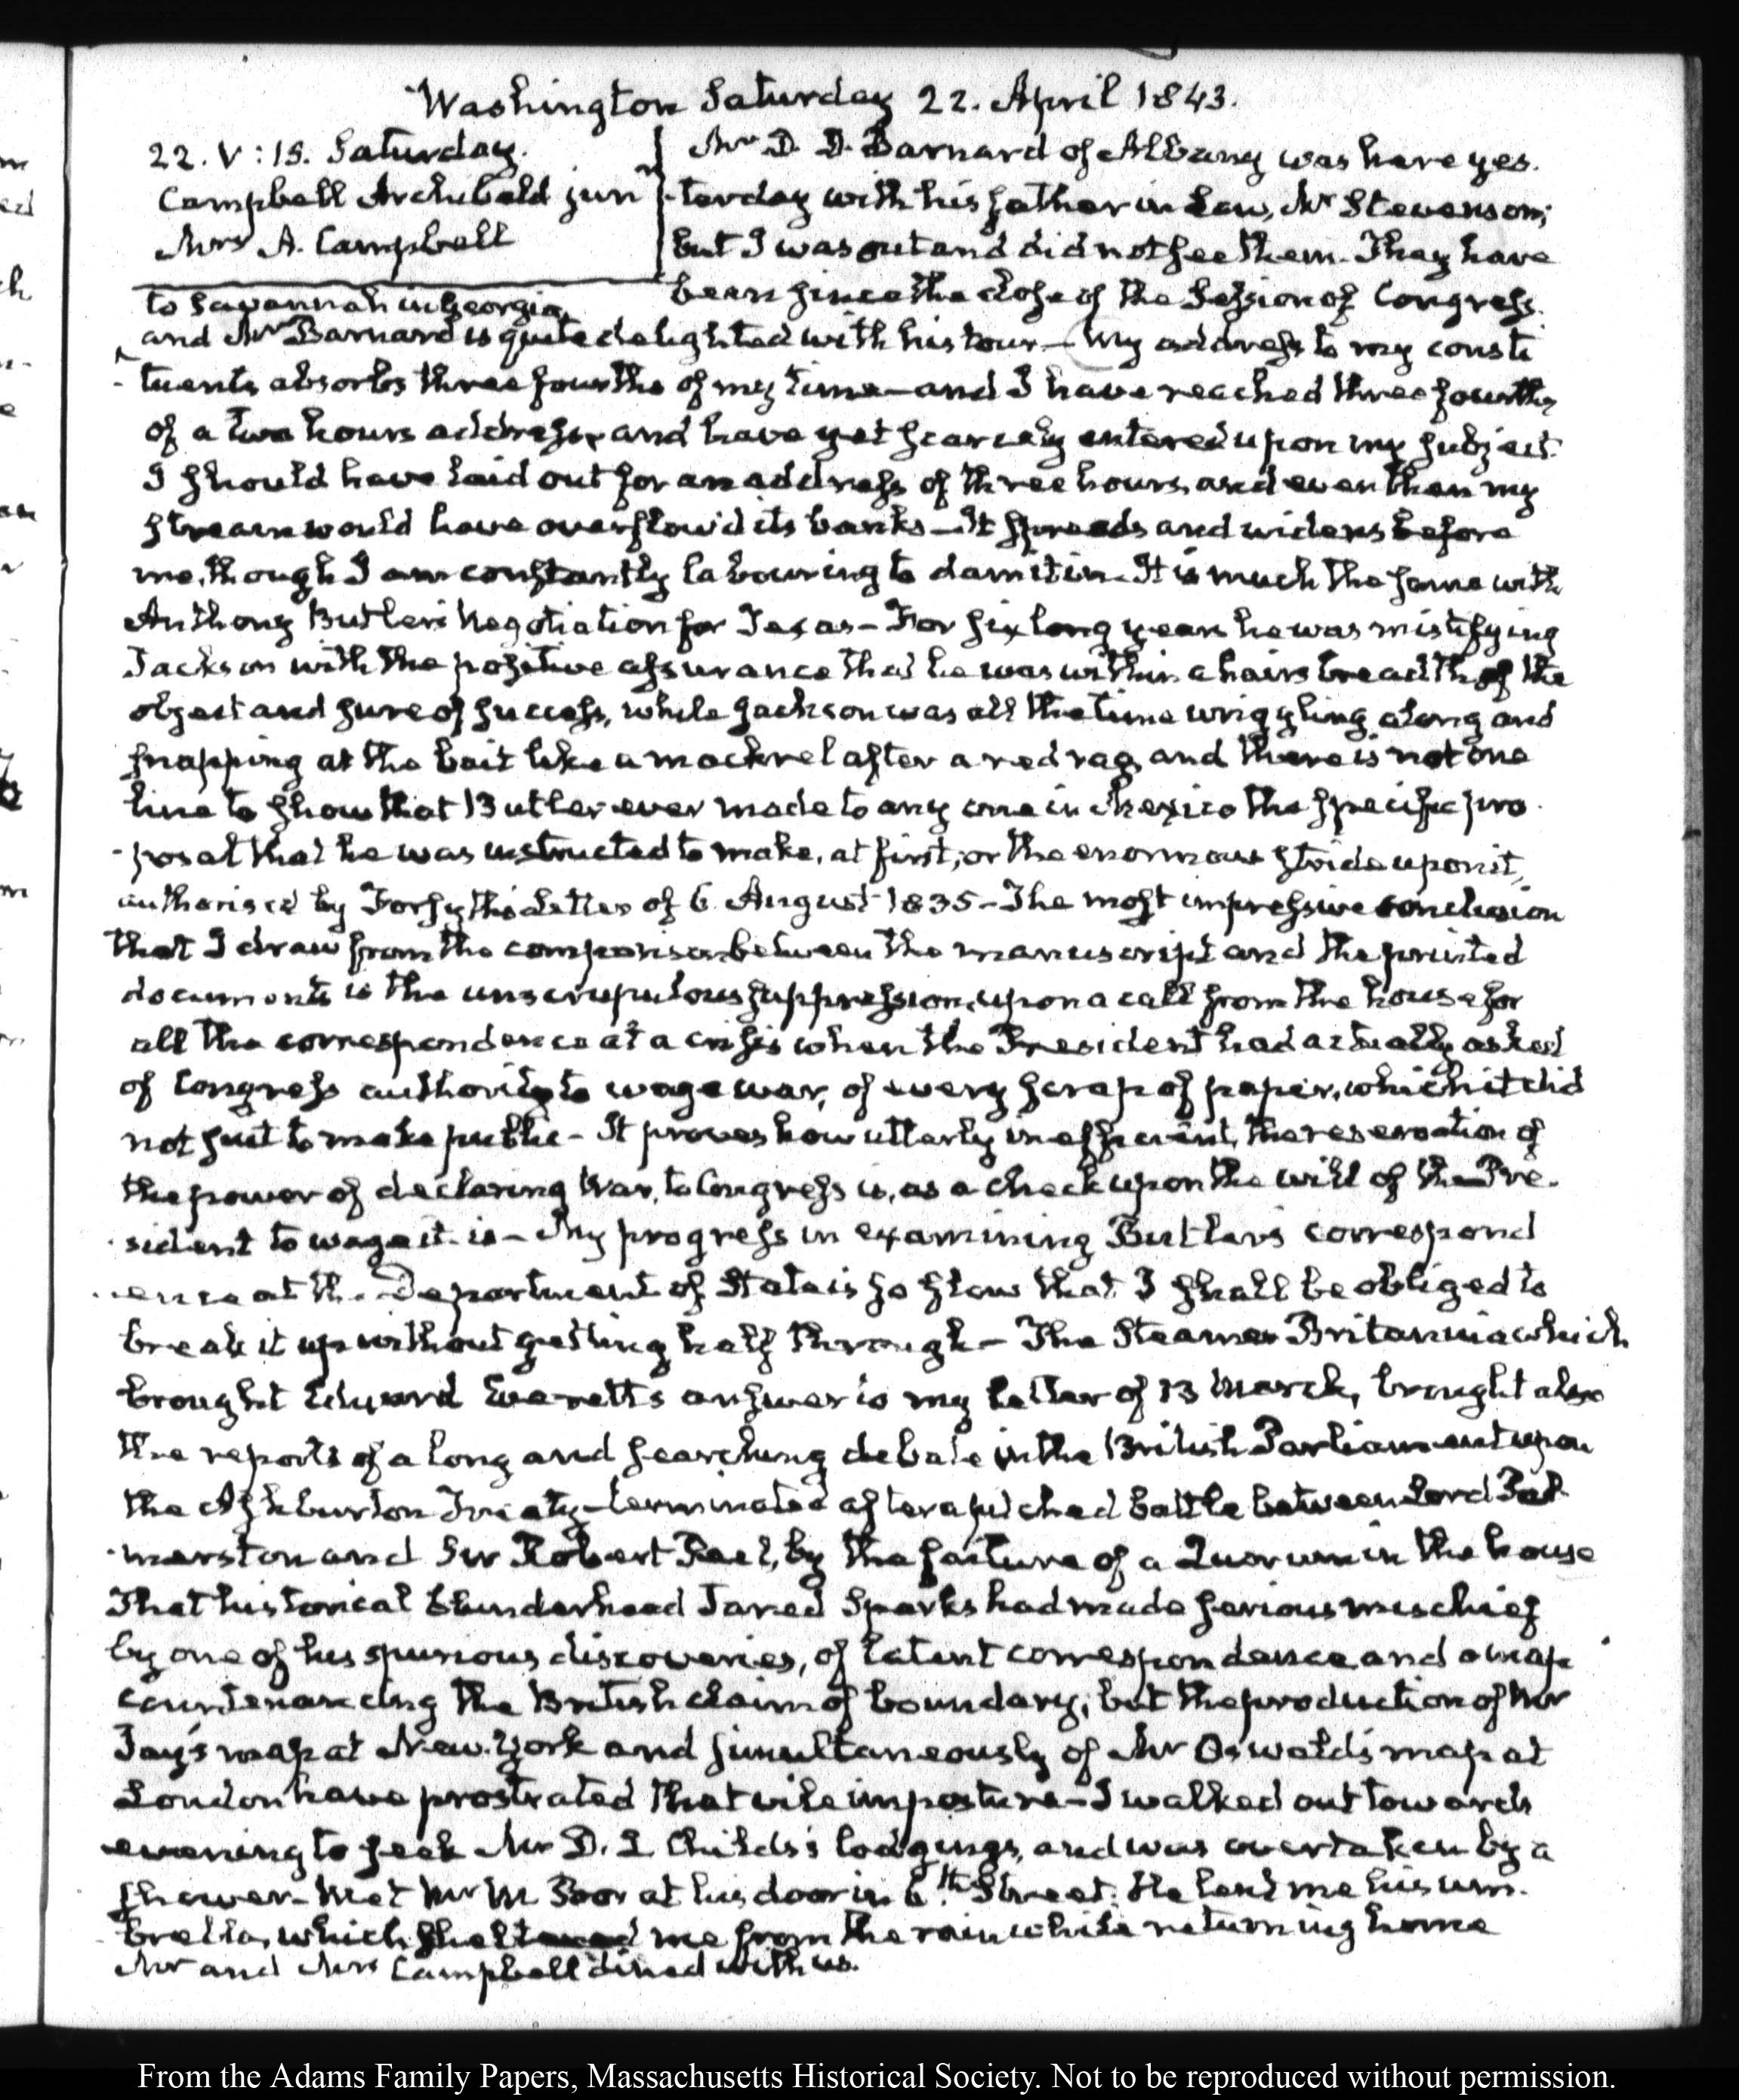 Washington Saturday 22. April 1843.
22. V:15. Saturday.
Campbell Archibald junr
Mrs A. Campbell
Mr D. D. Barnard of Albany was here yes-
-terday with his father in Law, Mr Stevenson;
but I was out and did not see them. They have
been since the close of the Session of Congress
to Savannah in Georgia,
and Mr Barnard is quite delighted with his tour— My address to my consti
-tuents absorbs three fourths of my time—and I have reached three fourths
of a two hours address, and have yet scarcely entered upon my subject.
I should have laid out for an address of three hours, and even then my
stream would have overflow'd its banks—It spreads and widens before
me, though I am constantly labouring to dam it in. It is much the same with
Anthony Butler's Negotiation for Texas—For six long years he was mistifying
Jackson with the positive assurance that he was within a hairs breadth of the
object and sure of success, while Jackson was all the time wriggling along and
snapping at the bait like a mackrel after a red rag, and there is not one
line to show that Butler ever made to any one in Mexico the specific pro
-posal that he was instructed to make, at first; or the enormous stride upon it,
authorised by Forsyth's Letter of 6. August 1835—The most impressive conclusion
that I draw from the comparison between the manuscript and the printed
documents is the unscrupulous suppression, upon a call from the house for
all the correspondence at a crisis when the President had actually asked
of Congress authority to wage war, of every scrap of paper, which it did
not suit to make public—It proves how utterly inefficient, the reservation of
the power of declaring War, to Congress is, as a check upon the will of the Pre-
-sident to wage it. is—My progress in examining Butler's correspond
-ence at the Department of State is so slow that I shall be obliged to
break it up without getting half through—The Steamer Britannia which
brought Edward Everett's answer to my letter of 13 March, brought also
the reports of a long and searching debate in the British Parliament upon
the Ashburton Treaty—terminated after a pitched battle between Lord Pal
-merston and Sir Robert Peel, by the failure of a Quorum in the house
That historical blunderhead Jared Sparks had made serious mischief
by one of his spurious discoveries, of latent correspondence and a map
countenancing the British claim of boundary, but the production of Mr
Jay's map at New-York and simultaneously of Mr Oswald's map at
London have prostrated that vile imposture—I walked out towards
evening to seek Mr D. L Childs's lodgings, and was overtaken by a
shower—Met Mr M at his door in 6.th Street. He lent me his um-
-brella, which sheltered me from the rain while returning home
Mr and Mrs Campbell dined with us.
From the Adams Family Papers, Massachusetts Historical Society. Not to be reproduced without permission.